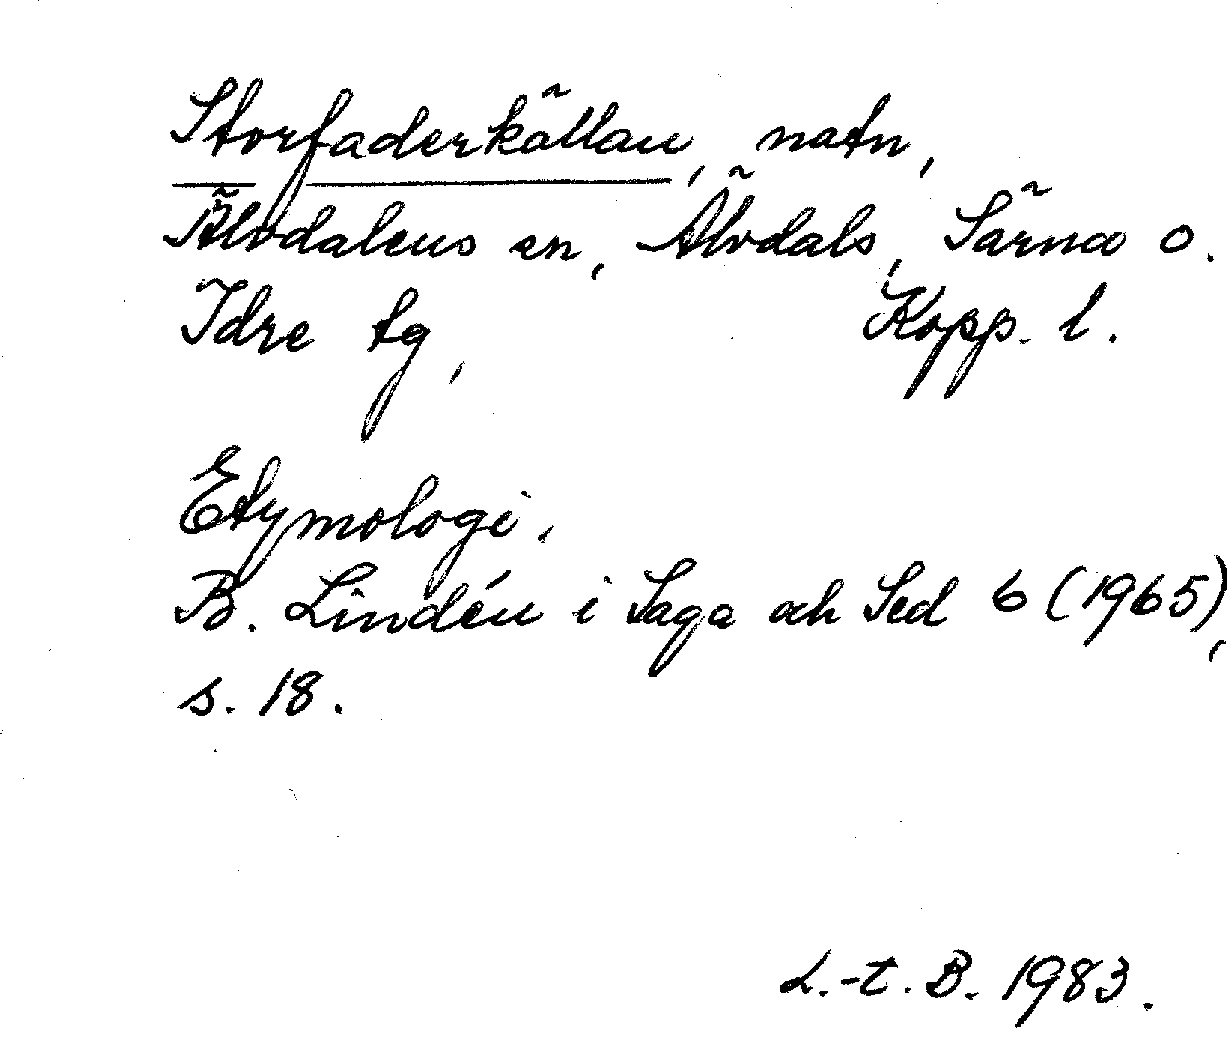 Storfaderkällan, natn,
Älvdalens sn, Älvdals, Särna o.
Idre tg, Kopp. l.
Etymologi.
B. Lindén i Saga och Sed 6 (1965),
s. 18.
L.-t. B. 1983.